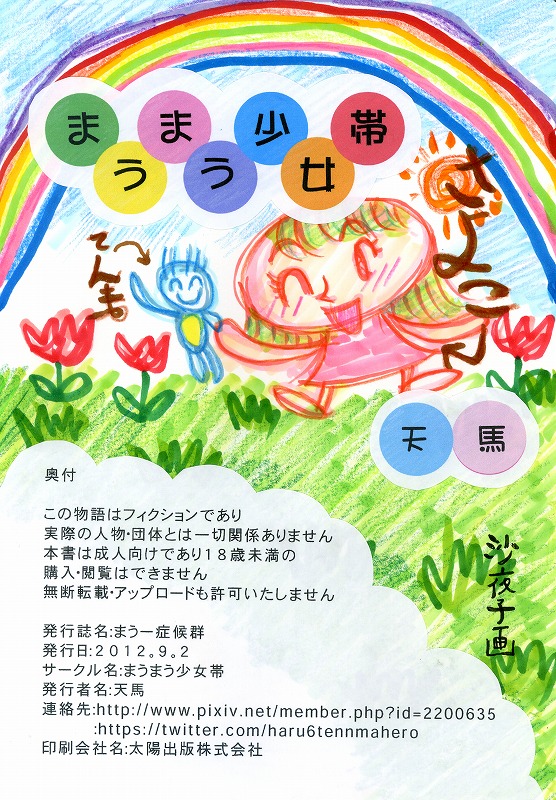 まうまう少女帯
さよこ
てんま
天馬
沙夜子画
奥付
この物語はフィクションであり
実際の人物・団体とは一切関係ありません
本書は成人向けであり18歳未満の
購入・閲覧はできません
無断転載・アップロードも許可いたしません
発行誌名:まうー症候群
発行日:2012.9.2
サークル名:まうまう少女帯
発行者名:天馬
連絡先:http://www.pixiv.net/member.php?id=2200635
:https://twitter.com/haru6tennmahero
印刷会社名:太陽出版株式会社